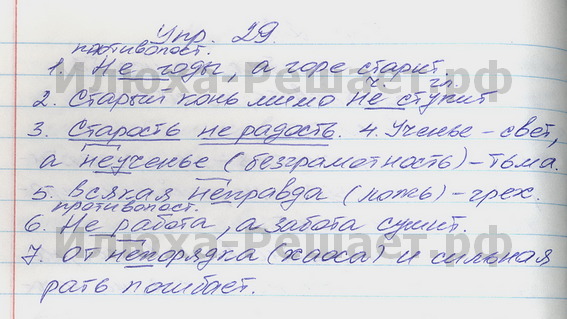 Упр. 29.
противопост.
1. Не годы, а горе старит.
ч. гл.
2. Старый конь мимо не ступит
3. Старость не радость. 4. Ученье – свет,
а неученье (безграмотность) – тьма.
5. Всякая неправда (ложь) – грех.
противопост.
6. Не работа, а забота сушит.
7. От непорядка (хаоса) и сильная
рать погибает.
Илюха-Решает.рф
Илюха-Решает.рф